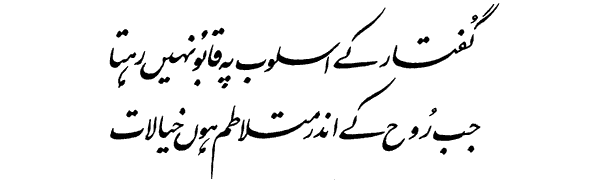 گُفتار کے اسلوب پہ قابُو نہیں رہتا
جب رُوح کے اندر متلاطم ہوں خیالات